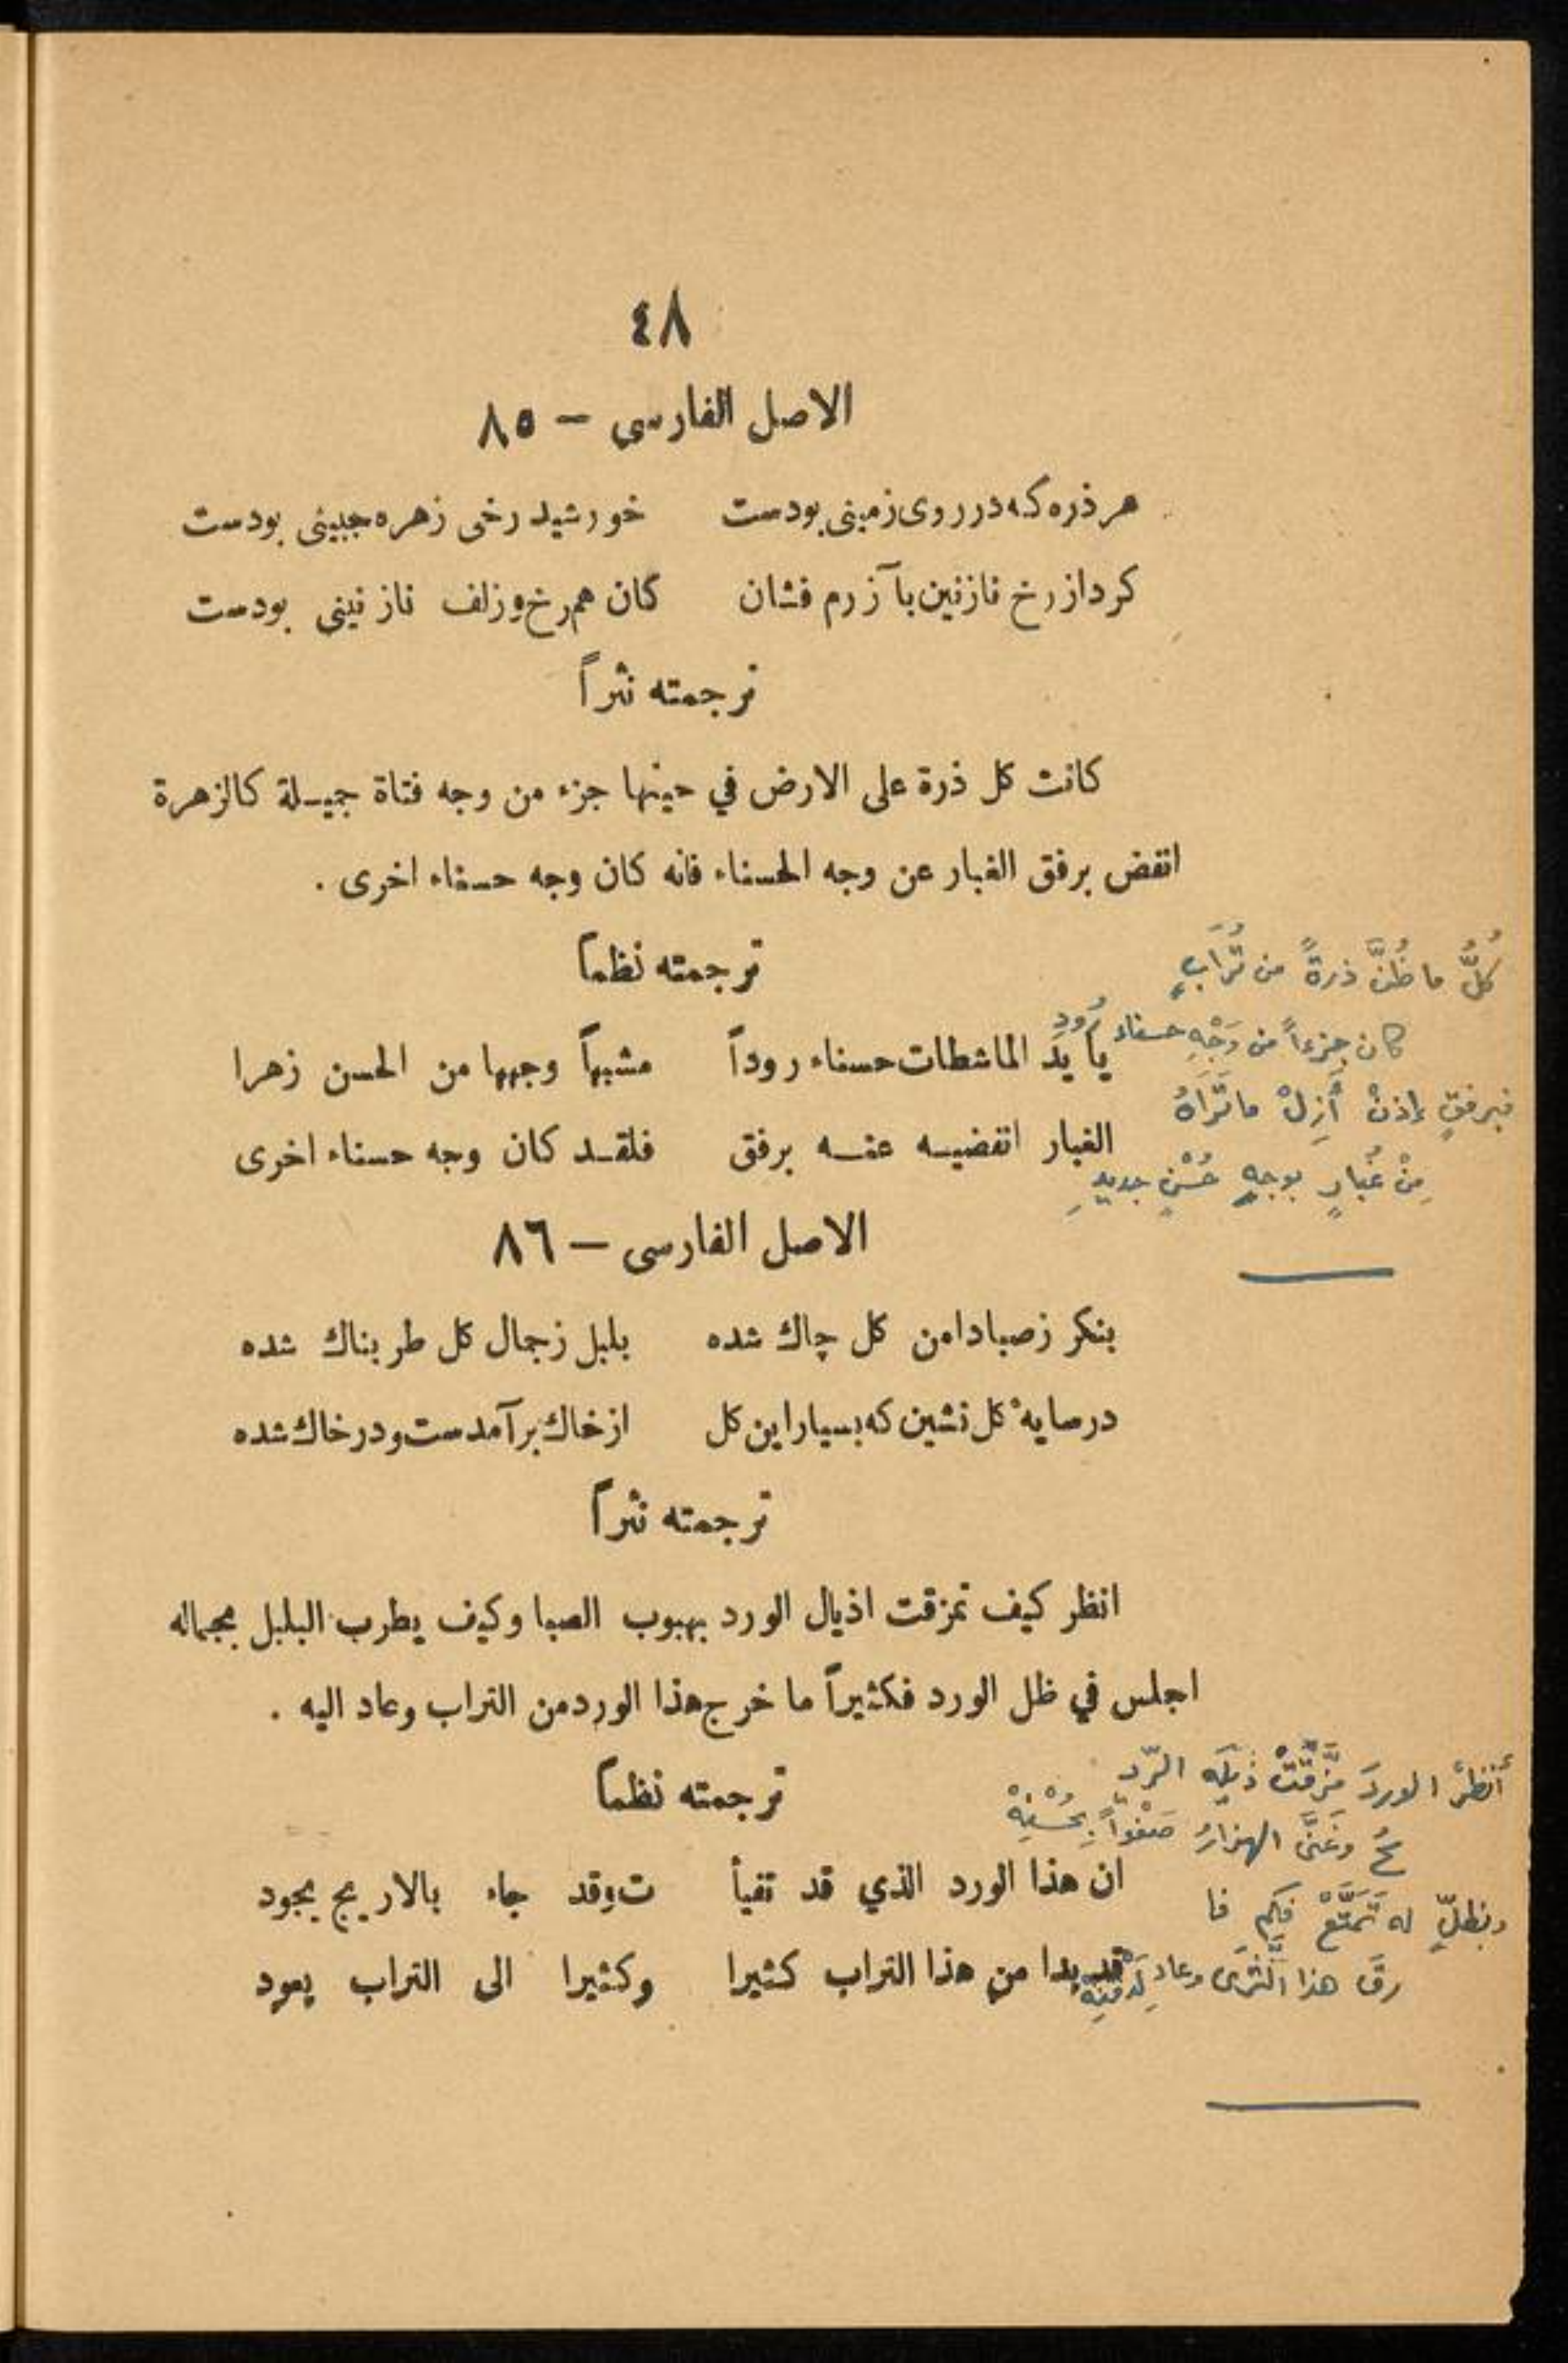 ٤٨
الاصل الفارسى – ٨٥
هر ذره كه در روى زمينى بودست    خورشيد رخى زهره جبينى بودست
كرد از رخ نازنين بآ زرم فشان    كان هم رخ و زلف نازنينى بودست
ترجمته نثراً
كانت كل ذرة على الارض في حينها جزء من وجه فتاة جميلة كالزهرة
انفض برفق الغبار عن وجه الحسناء فانه كان وجه حسناء اخرى .
ترجمته نظماً
يا يد الماشطات حسناء روداً    مشبهاً وجهها من الحسن زهرا
الغبار انفضيه عنه برفق    فلقد كان وجه حسناء اخرى
كُلُّ ما ظُنَّ ذرةً من تُرَابٍ
كان جزءاً من وَجْهِ حسناء رُودِ
فبرفقٍ إذنْ أَزِلْ ما تَرَاهُ
مِنْ غُبارٍ بوجهِ حُسْنٍ جديدِ
الاصل الفارسى – ٨٦
بنكر زصبا دامن كل چاك شده    بلبل زجمال كل طربناك شده
در سايهٔ كل نشين كه بسيار اين كل    از خاك برآمدست و در خاك شده
ترجمته نثراً
انظر كيف تمزقت اذيال الورد بهبوب الصبا وكيف يطرب البلبل بجماله
اجلس في ظل الورد فكثيراً ما خرج هذا الورد من التراب وعاد اليه .
ترجمته نظماً
ان هذا الورد الذي قد تفيأ    ت وقد جاء بالاريج يجود
قد بدا من هذا التراب كثيرا    وكثيرا الى التراب يعود
أنظرْ الوردَ مَزَّقَتْ ذَيلَه الرّيـ
ـحُ وغَنَّى الهزارُ صَفْواً بِحُسْنِهْ
وبظلٍّ له تَمَتَّعْ فكم فا
رقَ هذا الثَّرَى وعاد لِدَفْنِهْ